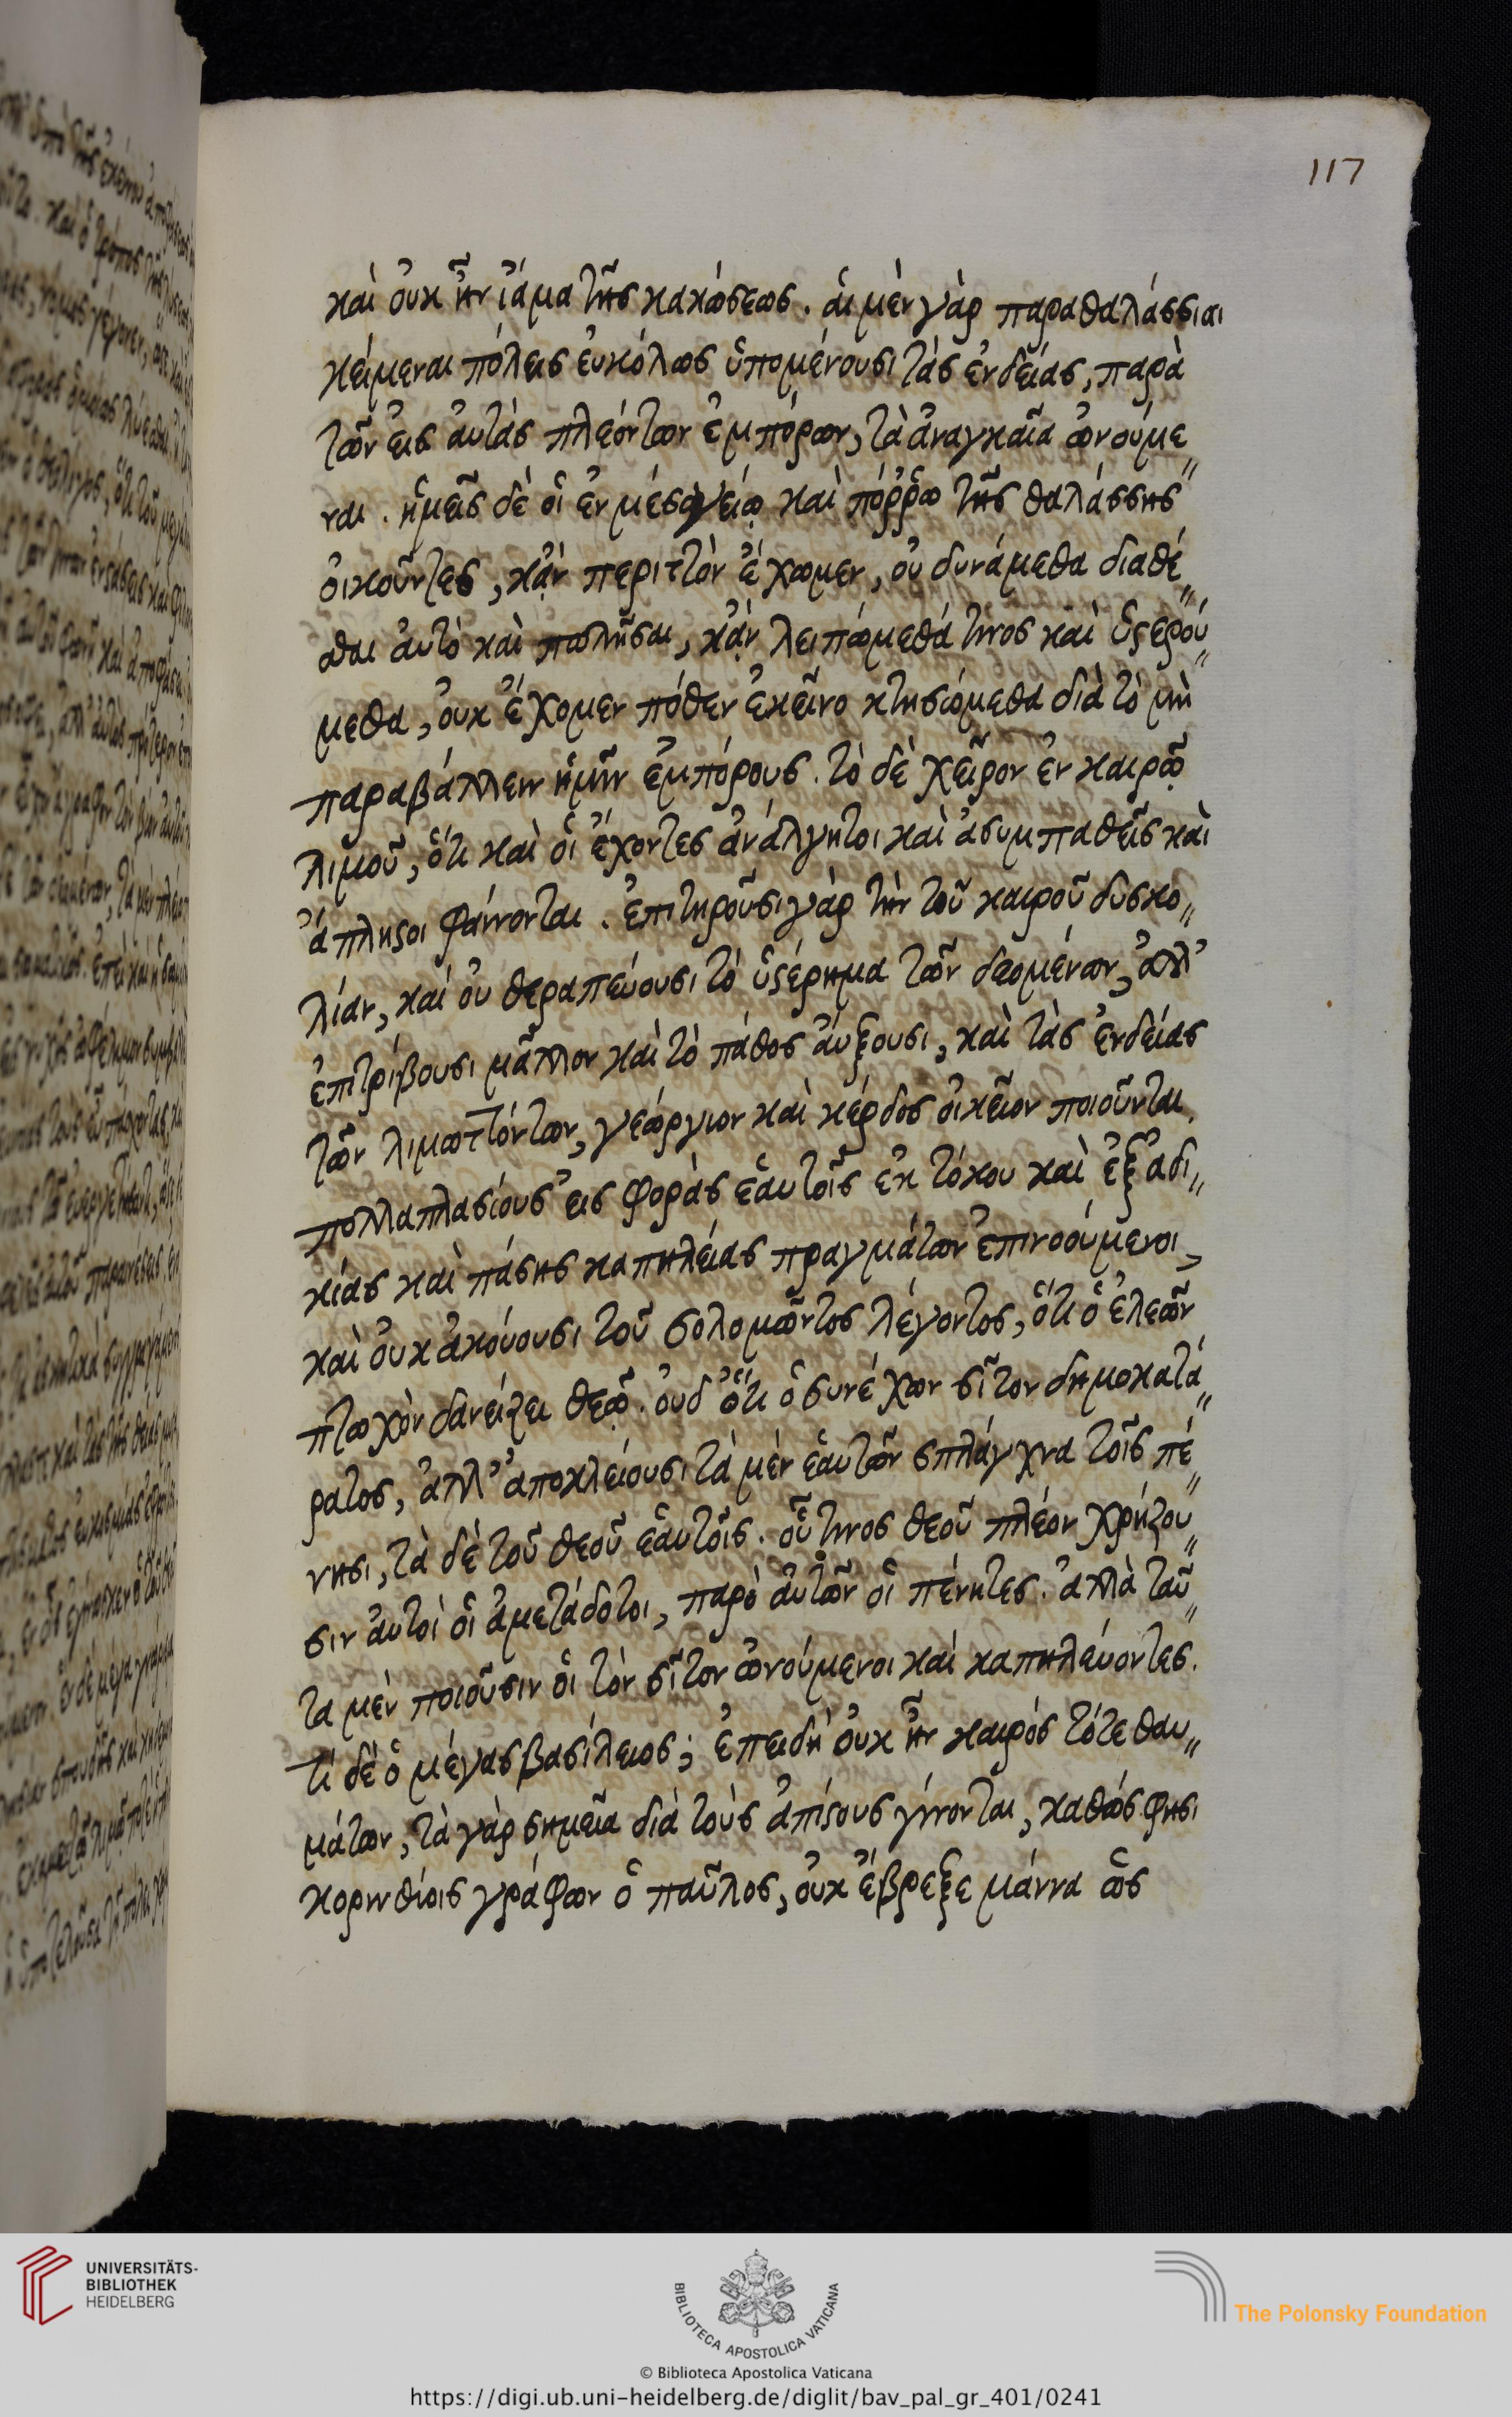 117
καὶ οὐκ ἦν ἴαμα τῆς κακώσεως. αἱ μὲν γὰρ παραθαλάσσιαι
κείμεναι πόλεις εὐκόλως ὑπομένουσι τὰς ἐνδείας, παρὰ
τῶν εἰς αὐτὰς πλεόντων ἐμπόρων, τὰ ἀναγκαῖα ὠνούμε〃
ναι. ἡμεῖς δὲ οἱ ἐν μεσογείῳ καὶ πόῤῥω τῆς θαλάσσης
οἰκοῦντες, κἂν περιττὸν ἔχωμεν, οὐ δυνάμεθα διαθέ〃
σθαι αὐτὸ καὶ πωλῆσαι, κἂν λειπώμεθά τινος καὶ ὑστερού〃
μεθα, οὐκ ἔχομεν πόθεν ἐκεῖνο κτησώμεθα διὰ τὸ μὴ
παραβάλλειν ἡμῖν ἐμπόρους. τὸ δὲ χεῖρον ἐν καιρῷ
λιμοῦ, ὅτι καὶ οἱ ἔχοντες ἀνάλγητοι καὶ ἀσυμπαθεῖς καὶ
ἄπληστοι φαίνονται. ἐπιτηροῦσι γὰρ τὴν τοῦ καιροῦ δυσκο〃
λίαν, καὶ οὐ θεραπεύουσι τὸ ὑστέρημα τῶν δεομένων, ἀλλ'
ἐπιτρίβουσι μᾶλλον καὶ τὸ πάθος αὔξουσι, καὶ τὰς ἐνδείας
τῶν λιμωττόντων, γεώργιον καὶ κέρδος οἰκεῖον ποιοῦνται,
πολλαπλασίους εἰς φορὰς ἑαυτοῖς ἐκ τόκου καὶ ἐξ ἀδι〃
κίας καὶ πάσης καπηλείας πραγμάτων ἐπινοούμενοι,
καὶ οὐκ ἀκούουσι τοῦ σολομῶντος λέγοντος, ὅτι ὁ ἐλεῶν
πτωχὸν δανείζει θεῷ. οὐδ' ὅτι ὁ συνέχων σῖτον δημοκατά〃
ρατος, ἀλλ' ἀποκλείουσι τὰ μὲν ἑαυτῶν σπλάγχνα τοῖς πέ〃
νησι, τὰ δὲ τοῦ θεοῦ ἑαυτοῖς. οὗτινος θεοῦ πλέον χρήζου〃
σιν αὐτοὶ οἱ ἀμετάδοτοι, παρὸ αὐτῶν οἱ πένητες. ἀλλὰ ταῦ〃
τα μὲν ποιοῦσιν οἱ τὸν σῖτον ὠνούμενοι καὶ καπηλεύοντες.
τί δὲ ὁ μέγας βασίλειος; ἐπειδὴ οὐκ ἦν καιρός τότε θαυ〃
μάτων, τὰ γὰρ σημεῖα διὰ τοὺς ἀπίστους γίνονται, καθώς φησι
κορινθίοις γράφων ὁ παῦλος, οὐκ ἔβρεξε μάννα ὡς
UNIVERSITÄTS-
BIBLIOTHEK
HEIDELBERG
BIBLIOTECA APOSTOLICA VATICANA
The Polonsky Foundation
© Biblioteca Apostolica Vaticana
https://digi.ub.uni-heidelberg.de/diglit/bav_pal_gr_401/0241